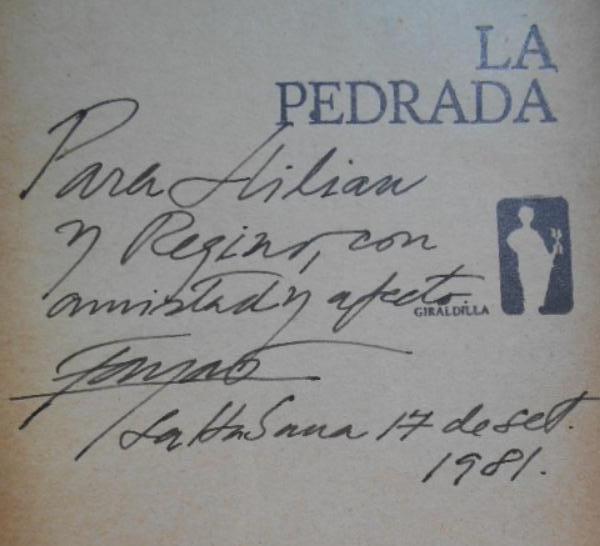 LA
PEDRADA
Para Lilian
y Regino, con
amistad y afecto.
GIRALDILLA
Fayad
La Habana 17 de set.
1981.